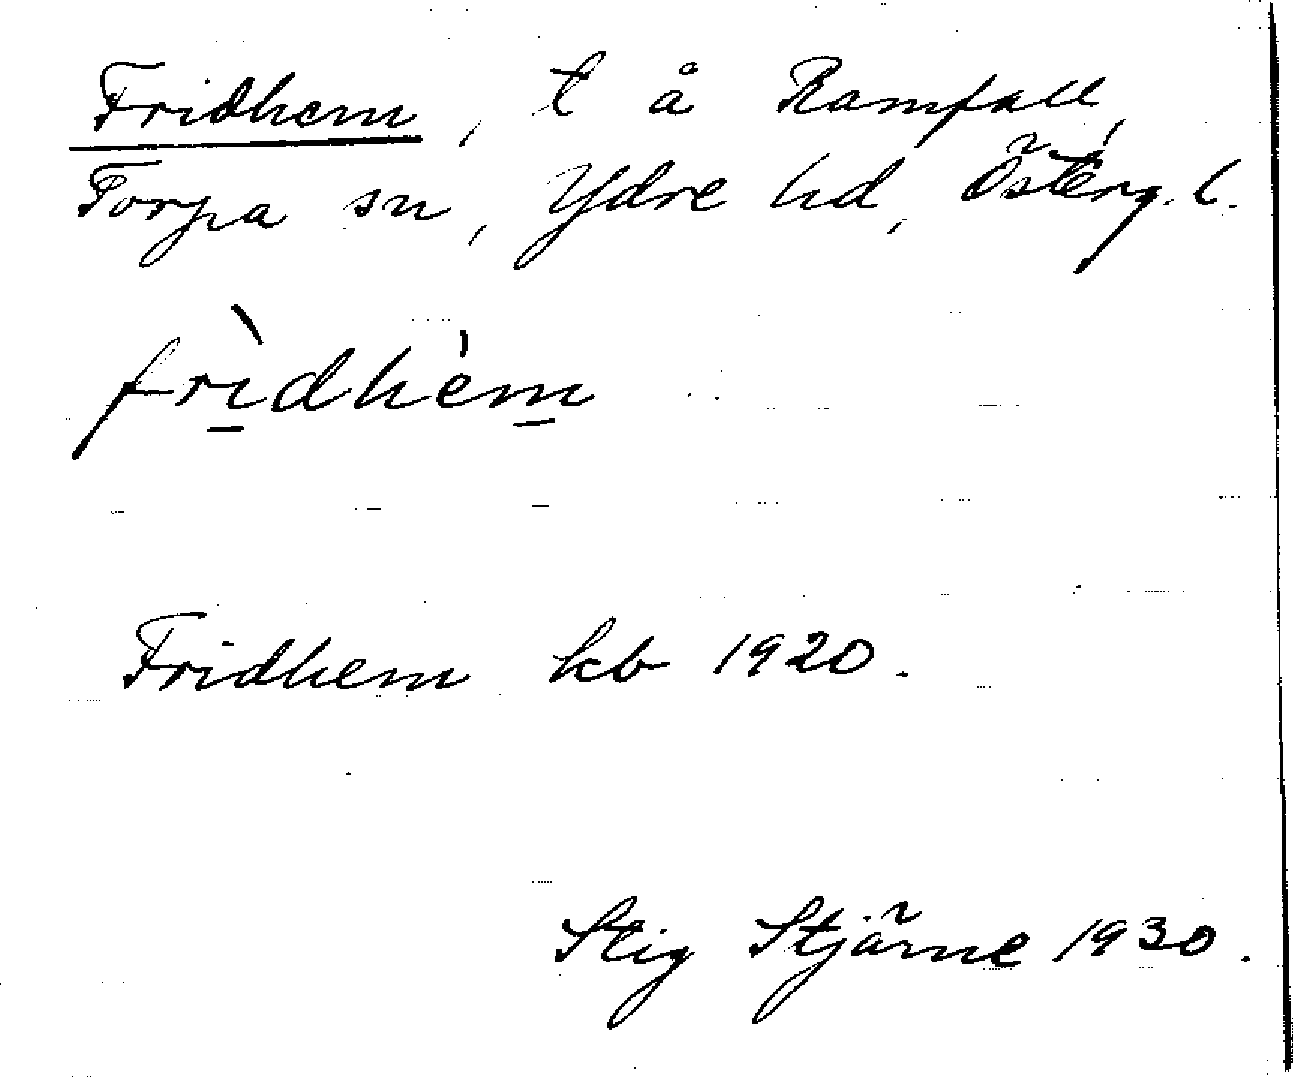 Fridhem, t å Ramfall,
Torpa sn, Ydre hd, Österg. l.
frìdhèm
Fridhem kb 1920.
Stig Stjärne 1930.